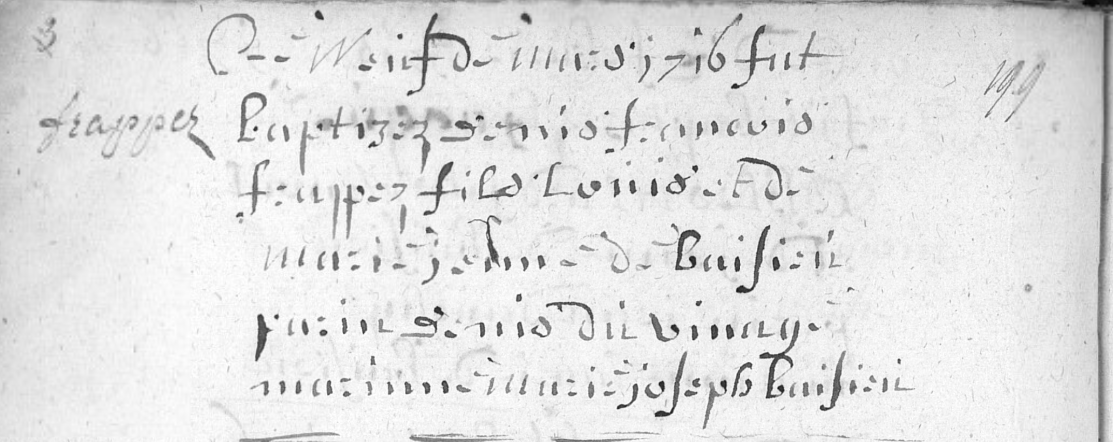 3
Cee Neuf de mars 1716 fut
199
frappez
baptizez denis francois
frappez fils Louis et de
marie jenne de baisieu
parin denis du vinage
marinne marie joseph baisieu